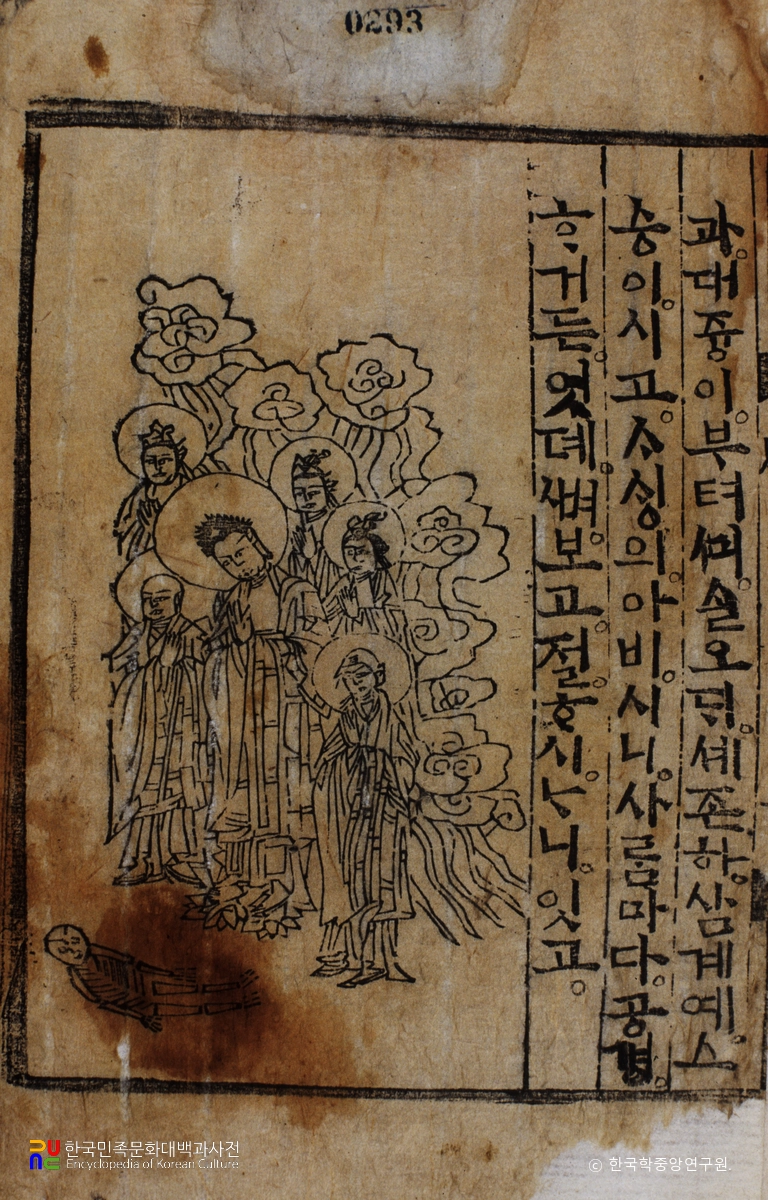 0293
과。대즁이。부텨ᄭᅴ。ᄉᆞᆯ오ᄃᆡ。셰존하。삼계예ᄉᆞ
승이。시고。ᄉᆞᄉᆡᆼ의。아비。시니。사름마다。공경。
ᄒᆞ거든。엇뎨。ᄲᅧ。보고。절。ᄒᆞ시。ᄂᆞ니。잇고。
한국민족문화대백과사전
Encyclopedia of Korean Culture
© 한국학중앙연구원.